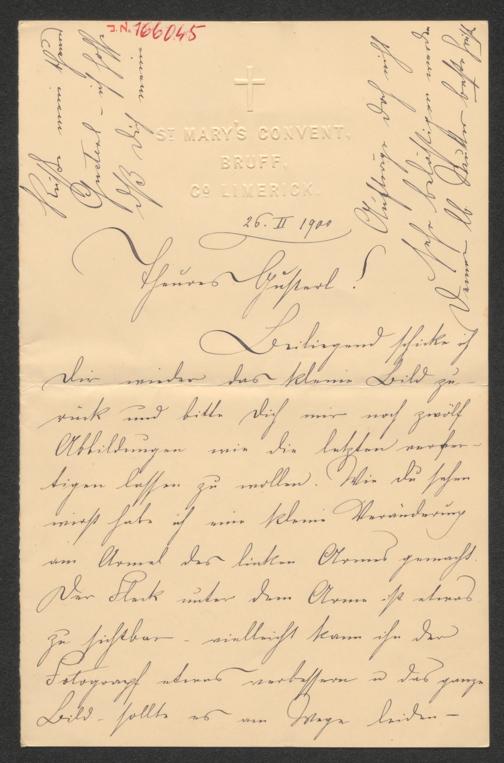 I.N. 166045
ST MARY'S CONVENT,
BRUFF,
CO LIMERICK.
26. II 1900
Theures Gusterl!
Beiliegend schicke ich
Dir wieder das kleine Bild zu-
rück und bitte Dich mir noch zwölf
Abbildungen wie die letzten verfer-
tigen lassen zu wollen. Wie Du sehen
wirst habe ich eine kleine Veränderung
am Ärmel des linken Armes gemacht.
Der Fleck unter dem Arme ist etwas
zu sichtbar - vielleicht kann ihn der
Fotograph etwas verbessern u das ganze
Bild - sollte es am Wege leiden -
Küsse
Gusterl - ich hoffe
daß Dich meine
Aufträge doch nicht
sehr belästigen werden